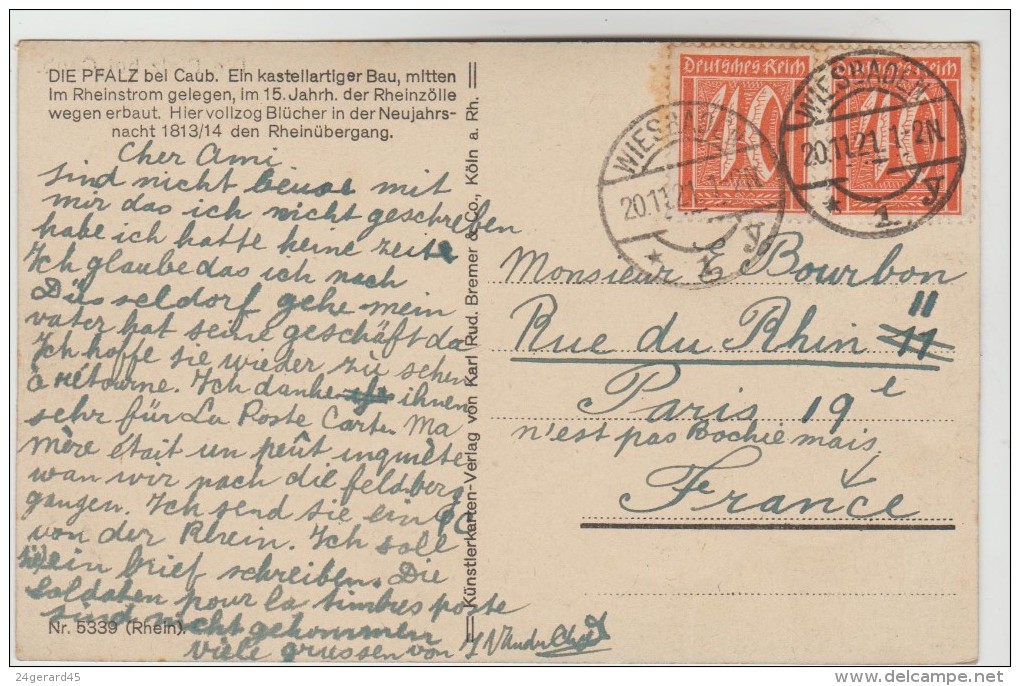 DIE PFALZ bei Caub. Ein kastellartiger Bau, mitten
im Rheinstrom gelegen, im 15. Jahrh. der Rheinzölle
wegen erbaut. Hier vollzog Blücher in der Neujahrs-
nacht 1813/14 den Rheinübergang.
Cher Ami
sind nicht beuse mit
mir das ich nicht geschreben
habe ich hatte keine zeit
Ich glaube das ich nach
Düsseldorf gehe mein
vater hat seine geschäft da
Ich hoffe sie wieder zu sehen
à rétourne. Ich danke ihnen
sehr für La Poste Carte. Ma
mère était un peût inquiète
wan wir nach die feldberg
gangen. Ich send sie ein PC
von der Rhein. Ich soll
ein brief schreiben. Die
Soldaten pour la timbres poste
sind nicht gekommen
viele grussen von
Nr. 5339 (Rhein).
Künstlerkarten-Verlag von Karl Rud. Bremer & Co., Köln a. Rh.
Deutsches Reich
40
WIESBADEN
20.11.21. 1-2N
* 1 A
WIESBADEN
20.11.21. 1-2N
* 1 A
Monsieur G. Bourbon
11
Rue du Rhin 11
Paris 19e
n'est pas Bochie mais
France
24gerard45
delcampe.net